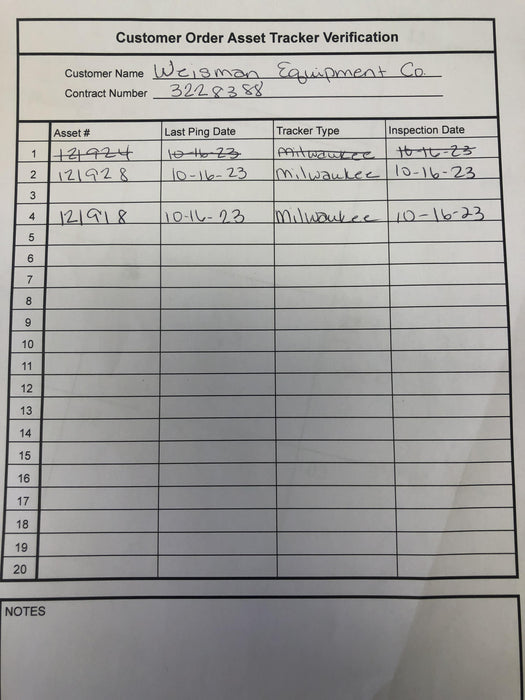 Customer Order Asset Tracker Verification
Customer Name Weisman Equipment Co.
Contract Number 3228388
Asset # Last Ping Date Tracker Type Inspection Date
1 121924 10-16-23 Milwaukee 10-16-23
2 121928 10-16-23 Milwaukee 10-16-23
3
4 121918 10-16-23 Milwaukee 10-16-23
5
6
7
8
9
10
11
12
13
14
15
16
17
18
19
20
NOTES